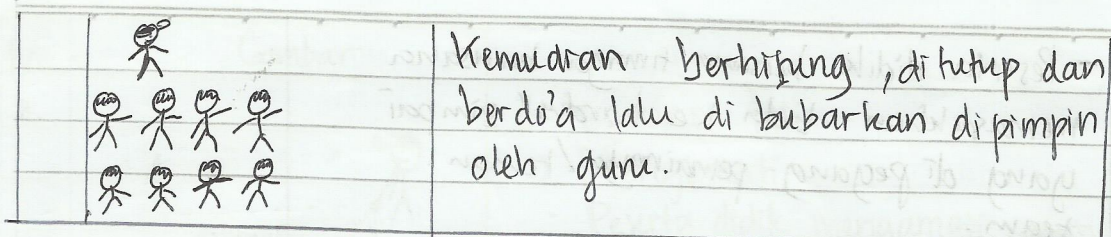 Kemudian berhitung, di tutup dan
berdo'a lalu di bubarkan dipimpin
oleh guru.